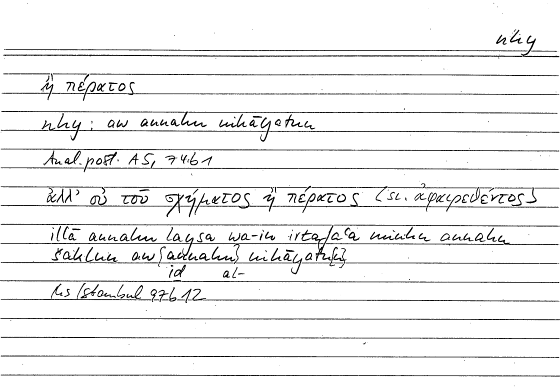 nhy
ἢ πέρατος
nhy: aw annahu nihāyatun
Anal. post. A5, 74b1
ἀλλ' οὐ τοῦ σχήματος ἢ πέρατος (sc. ἀφαιρεθέντος)
illā annahu laysa wa-in irtafaʿa minhu annahu
šaklun aw {annahu} nihāyatu{n}
id al-
Ms Istanbul 97b12